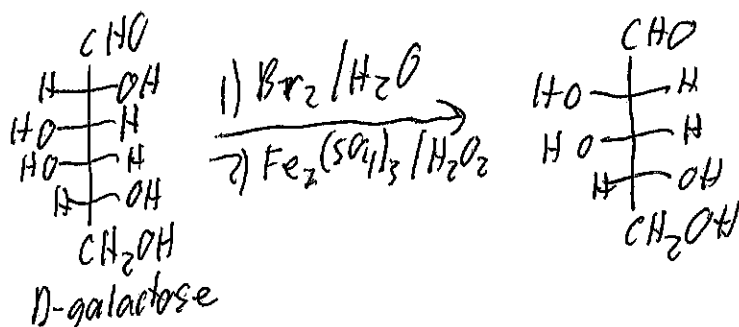 CHO
H OH
HO H
HO H
H OH
CH2OH
D-galactose
1) Br2/H2O
2) Fe2(SO4)3/H2O2
CHO
HO H
HO H
H OH
CH2OH